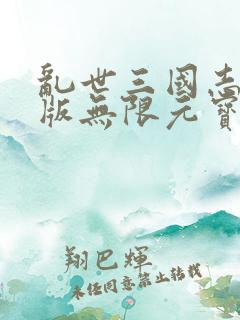 亂世三國志
版無限元寶
翔巴輝
未经同意禁止转载